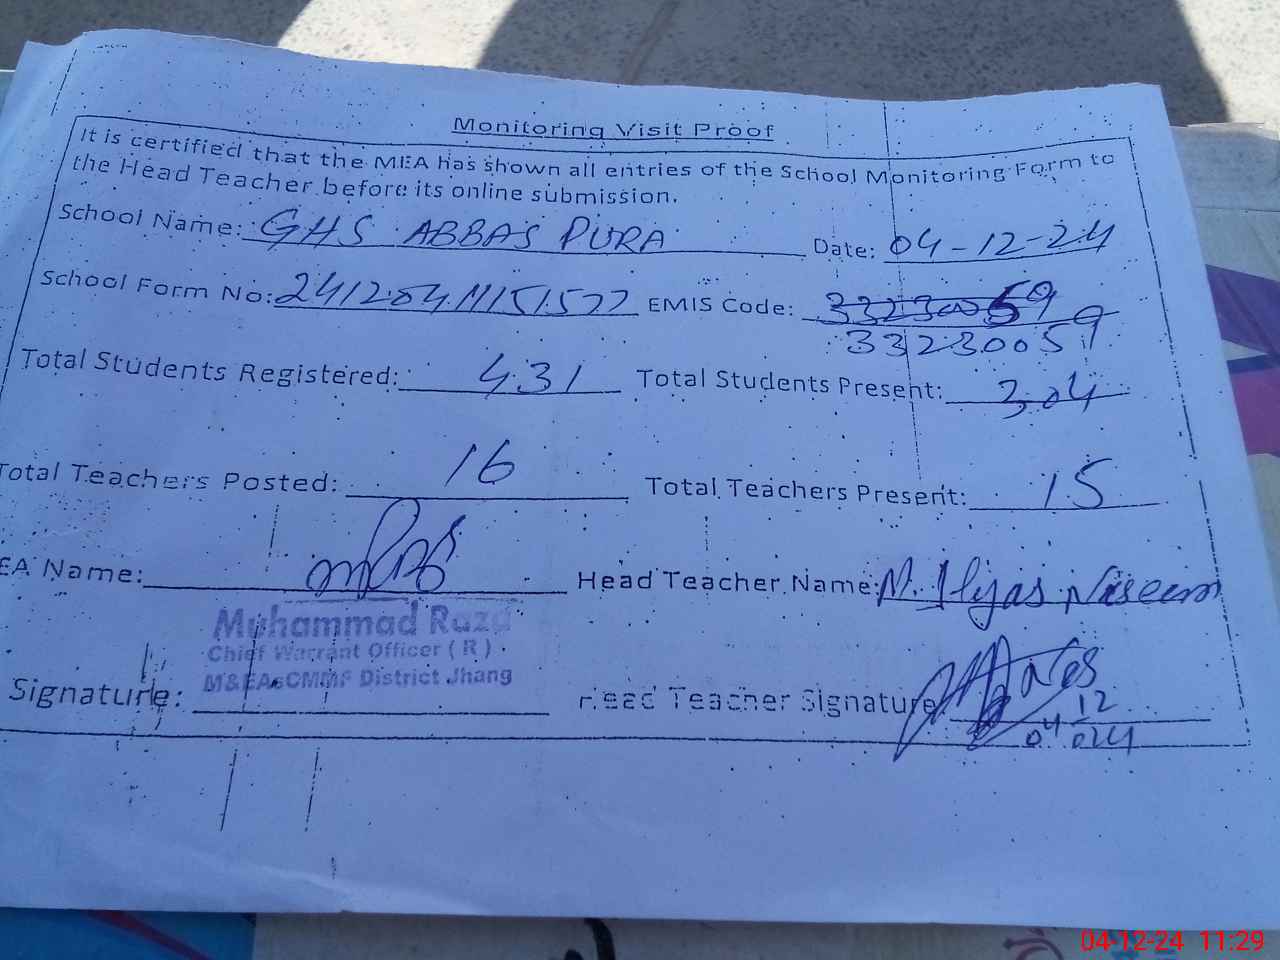 Monitoring Visit Proof
It is certified that the MEA has shown all entries of the School Monitoring Form to
the Head Teacher before its online submission.
School Name: GHS ABBAS PURA Date: 04-12-24
School Form No: EMIS Code:
33230059
Total Students Registered: 431 Total Students Present: 304
Total Teachers Posted: 16 Total Teachers Present: 15
EA Name: Head Teacher Name: M. Ilyas Naseem
Muhammad Raza
Chief Warrant Officer ( R )
M&EAsCMMF District Jhang
Signature: Head Teacher Signature
04 12 024
04-12-24 11:29